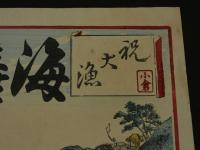 祝
大
漁
小倉
海